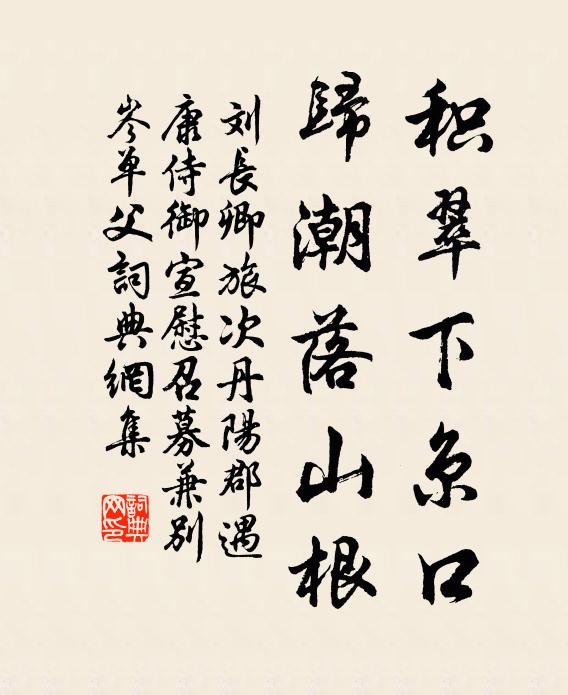 积翠下京口
歸潮落山根
刘長卿旅次丹陽郡遇
康侍御宣慰召募兼別
岑单父詞典網集
詞典
网印